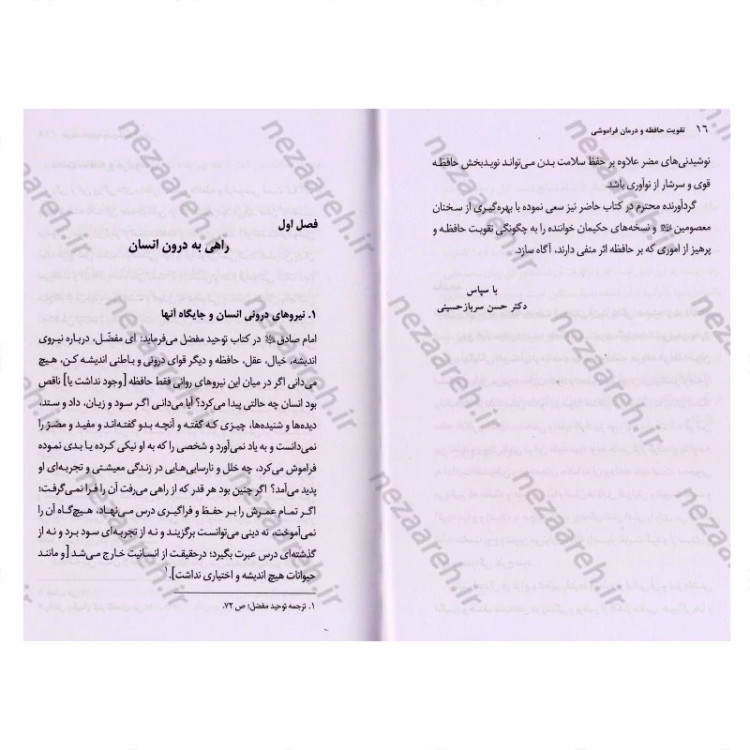 ۱۶ تقویت حافظه و درمان فراموشی
نوشیدنی‌های مضر علاوه بر حفظ سلامت بدن می‌تواند نویدبخش حافظه
قوی و سرشار از نوآوری باشد.
گردآورنده محترم در کتاب حاضر نیز سعی نموده با بهره‌گیری از سخنان
معصومین و نسخه‌های حکیمان خواننده را به چگونگی تقویت حافظه و
پرهیز از اموری که بر حافظه اثر منفی دارند، آگاه سازد.
با سپاس
دکتر حسن سربازحسینی
فصل اول
راهی به درون انسان
۱. نیروهای درونی انسان و جایگاه آنها
امام صادق در کتاب توحید مفضل می‌فرماید: ای مفضّل، درباره نیروی
اندیشه، خیال، عقل، حافظه و دیگر قوای درونی و باطنی اندیشه کن، هیچ
می‌دانی اگر در میان این نیروهای روانی فقط حافظه [وجود نداشت یا] ناقص
بود انسان چه حالتی پیدا می‌کرد؟ آیا می‌دانی اگر سود و زیان، داد و ستد،
دیده‌ها و شنیده‌ها، چیزی که گفته و آنچه بدو گفته‌اند و مفید و مضرّ را
نمی‌دانست و به یاد نمی‌آورد و شخصی را که به او نیکی کرده یا بدی نموده
فراموش می‌کرد، چه خلل و نارسایی‌هایی در زندگی معیشتی و تجربه‌ای او
پدید می‌آمد؟ اگر چنین بود هر قدر که از راهی می‌رفت آن را فرا نمی‌گرفت؛
اگر تمام عمرش را بر حفظ و فراگیری درس می‌نهاد، هیچ‌گاه آن را
نمی‌آموخت، نه دینی می‌توانست برگزیند و نه از تجربه‌ای سود برد و نه از
گذشته‌ای درس عبرت بگیرد؛ درحقیقت از انسانیت خارج می‌شد [و مانند
حیوانات هیچ اندیشه و اختیاری نداشت].۱
۱. ترجمه توحید مفضل؛ ص ۷۲.
nezaareh.ir
nezaareh.ir
nezaareh.ir
nezaareh.ir
nezaareh.ir
nezaareh.ir
nezaareh.ir
nezaareh.ir
nezaareh.ir